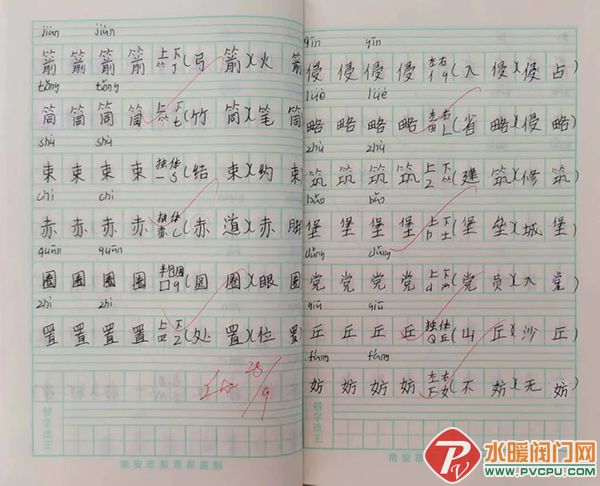 jiàn jiàn
箭 箭 箭 箭 上下 ⺮ J (弓 箭)(火 箭
tǒng tǒng
筒 筒 筒 筒 上下 ⺮ t (竹 筒)(笔 筒
shù shù
束 束 束 束 独体 一 S (结 束)(约 束
chì chì
赤 赤 赤 赤 独体 赤 C (赤 道)(赤 脚
quān quān
圈 圈 圈 圈 半包围 囗 q (圆 圈)(眼 圈
zhì zhì
置 置 置 置 上下 罒 Z (处 置)(位 置
28/9
订正改错
南安市教育局监制
qīn qīn
侵 侵 侵 侵 左右 亻 q (入 侵)(侵 占)
lüè lüè
略 略 略 略 左右 田 L (省 略)(侵 略)
zhù zhù
筑 筑 筑 筑 上下 Z ⺮ (建 筑)(修 筑)
bǎo bǎo
堡 堡 堡 堡 上下 b 土 (堡 垒)(城 堡)
dǎng dǎng
党 党 党 党 上下 d (党 员)(入 党)
qiū qiū
丘 丘 丘 丘 独体 Q 丘 (山 丘)(沙 丘)
fáng fáng
妨 妨 妨 妨 左右 F 女 (不 妨)(无 妨)
南安市
水暖阀门网
WWW.PVCPU.COM